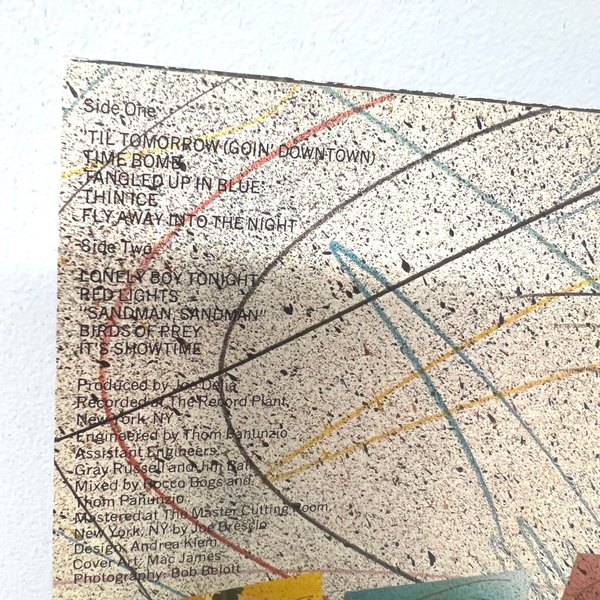 Side One
'TIL TOMORROW (GOIN' DOWNTOWN)
TIME BOMB
TANGLED UP IN BLUE
THIN ICE
FLY AWAY INTO THE NIGHT
Side Two
LONELY BOY TONIGHT
RED LIGHTS
"SANDMAN, SANDMAN"
BIRDS OF PREY
IT'S SHOWTIME
Produced by Joe Delia
Recorded at The Record Plant,
New York, NY
Engineered by Thom Panunzio
Assistant Engineers:
Gray Russell and Jim Ball
Mixed by Rocco Bogs and
Thom Panunzio
Mastered at The Master Cutting Room,
New York, NY by Joe Brescio
Design: Andrea Klein
Cover Art: Mac James
Photography: Bob Belott